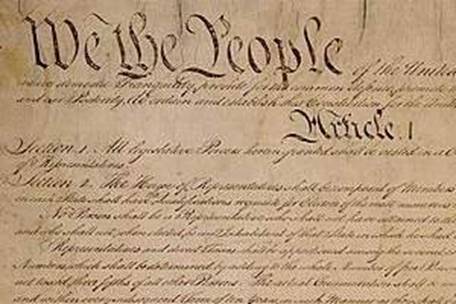 We the People of the United
insure domestic Tranquility, provide for the common defence, promote
and our Posterity, do ordain and establish this Constitution for the United
Article. I.
Section. 1. All legislative Powers herein granted shall be vested in a
of Representatives.
Section. 2. The House of Representatives shall be composed of Members
in each State shall have Qualifications requisite for Electors of the most numerous
No Person shall be a Representative who shall not have attained to the
and who shall not, when elected, be an Inhabitant of that State in which he shall
Representatives and direct Taxes shall be apportioned among the several
Numbers, which shall be determined by adding to the whole Number of free
not taxed, three fifths of all other Persons. The actual Enumeration shall be
and within every subsequent Term of ten Years,